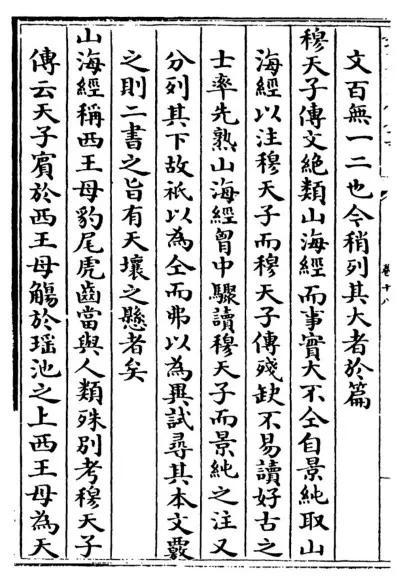 卷十八
文百無一二也今稍列其大者於篇
穆天子傳文絶類山海經而事實大不仝自景純取山
海經以注穆天子而穆天子傳殘缺不易讀好古之
士率先熟山海經胷中驟讀穆天子而景純之注又
分列其下故祇以為仝而弗以為異試尋其本文覈
之則二書之旨有天壤之懸者矣
山海經稱西王母豹尾虎齒當與人類殊別考穆天子
傳云天子賓於西王母觴於瑶池之上西王母為天